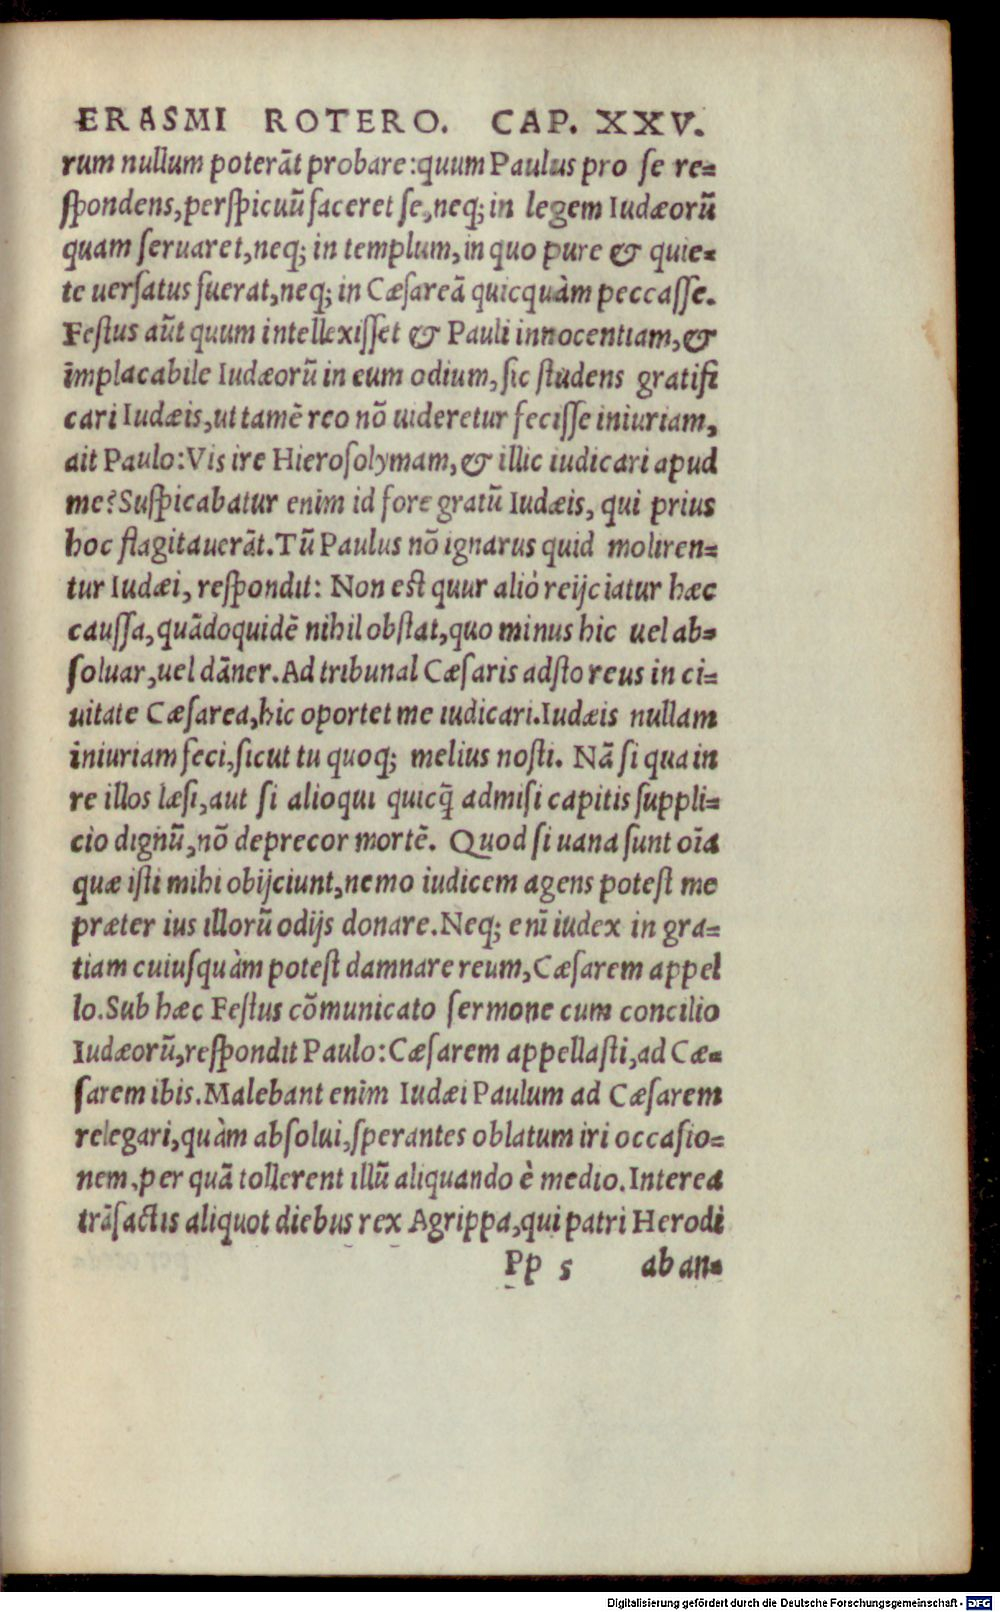 ERASMI ROTERO. CAP. XXV.
rum nullum poterāt probare:quum Paulus pro se re=
spondens,perspicuū faceret se,neq; in legem Iudæorū
quam seruaret,neq; in templum,in quo pure & quie=
te uersatus fuerat,neq; in Cæsareā quicquàm peccasse.
Festus aūt quum intellexisset & Pauli innocentiam,&
īmplacabile Iudæorū in eum odium,sic studens gratifi
cari Iudæis,ut tamē reo nō uideretur fecisse iniuriam,
ait Paulo:Vis ire Hierosolymam,& illic iudicari apud
me?Suspicabatur enim id fore gratū Iudæis, qui prius
hoc flagitauerāt.Tū Paulus nō ignarus quid moliren=
tur Iudæi, respondit: Non est quur aliò reijciatur hæc
caussa,quādoquidē nihil obstat,quo minus hic uel ab=
soluar,uel dāner.Ad tribunal Cæsaris adsto reus in ci=
uitate Cæsarea,hic oportet me iudicari.Iudæis nullam
iniuriam feci,sicut tu quoq; melius nosti. Nā si qua in
re illos læsi,aut si alioqui quicq̄ admisi capitis suppli=
cio dignū,nō deprecor mortē. Quod si uana sunt oīa
quæ isti mihi obijciunt,nemo iudicem agens potest me
præter ius illorū odijs donare.Neq; enī iudex in gra=
tiam cuiusquàm potest damnare reum,Cæsarem appel
lo.Sub hæc Festus cōmunicato sermone cum concilio
Iudæorū,respondit Paulo:Cæsarem appellasti,ad Cæ=
sarem ibis.Malebant enim Iudæi Paulum ad Cæsarem
relegari,quàm absolui,sperantes oblatum iri occasio=
nem,per quā tollerent illū aliquando è medio.Interea
trāsactis aliquot diebus rex Agrippa,qui patri Herodi
Pp s aban=
Digitalisierung gefördert durch die Deutsche Forschungsgemeinschaft - DFG